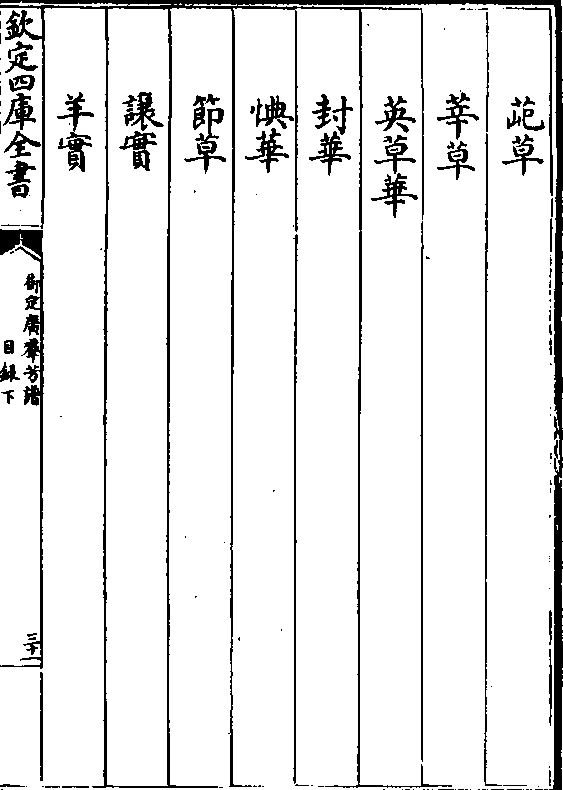 草
莘草
英草華
封華
㥏華
節草
讓實
羊實
欽定四庫全書
御定廣羣芳譜
目録下
三十一